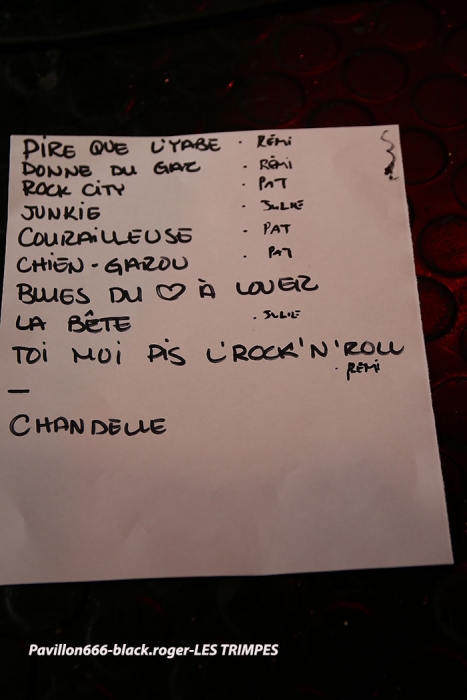 PIRE QUE L'YABE · RÉMI
DONNE DU GAZ · RÉMI
ROCK CITY · PAT
JUNKIE · JULIE
COURAILLEUSE · PAT
CHIEN-GAROU · PAT
BLUES DU ♡ À LOUER
LA BÊTE · JULIE
TOI MOI PIS L'ROCK'N'ROLL
· RÉMI
—
CHANDELLE
Pavillon666-black.roger-LES TRIMPES